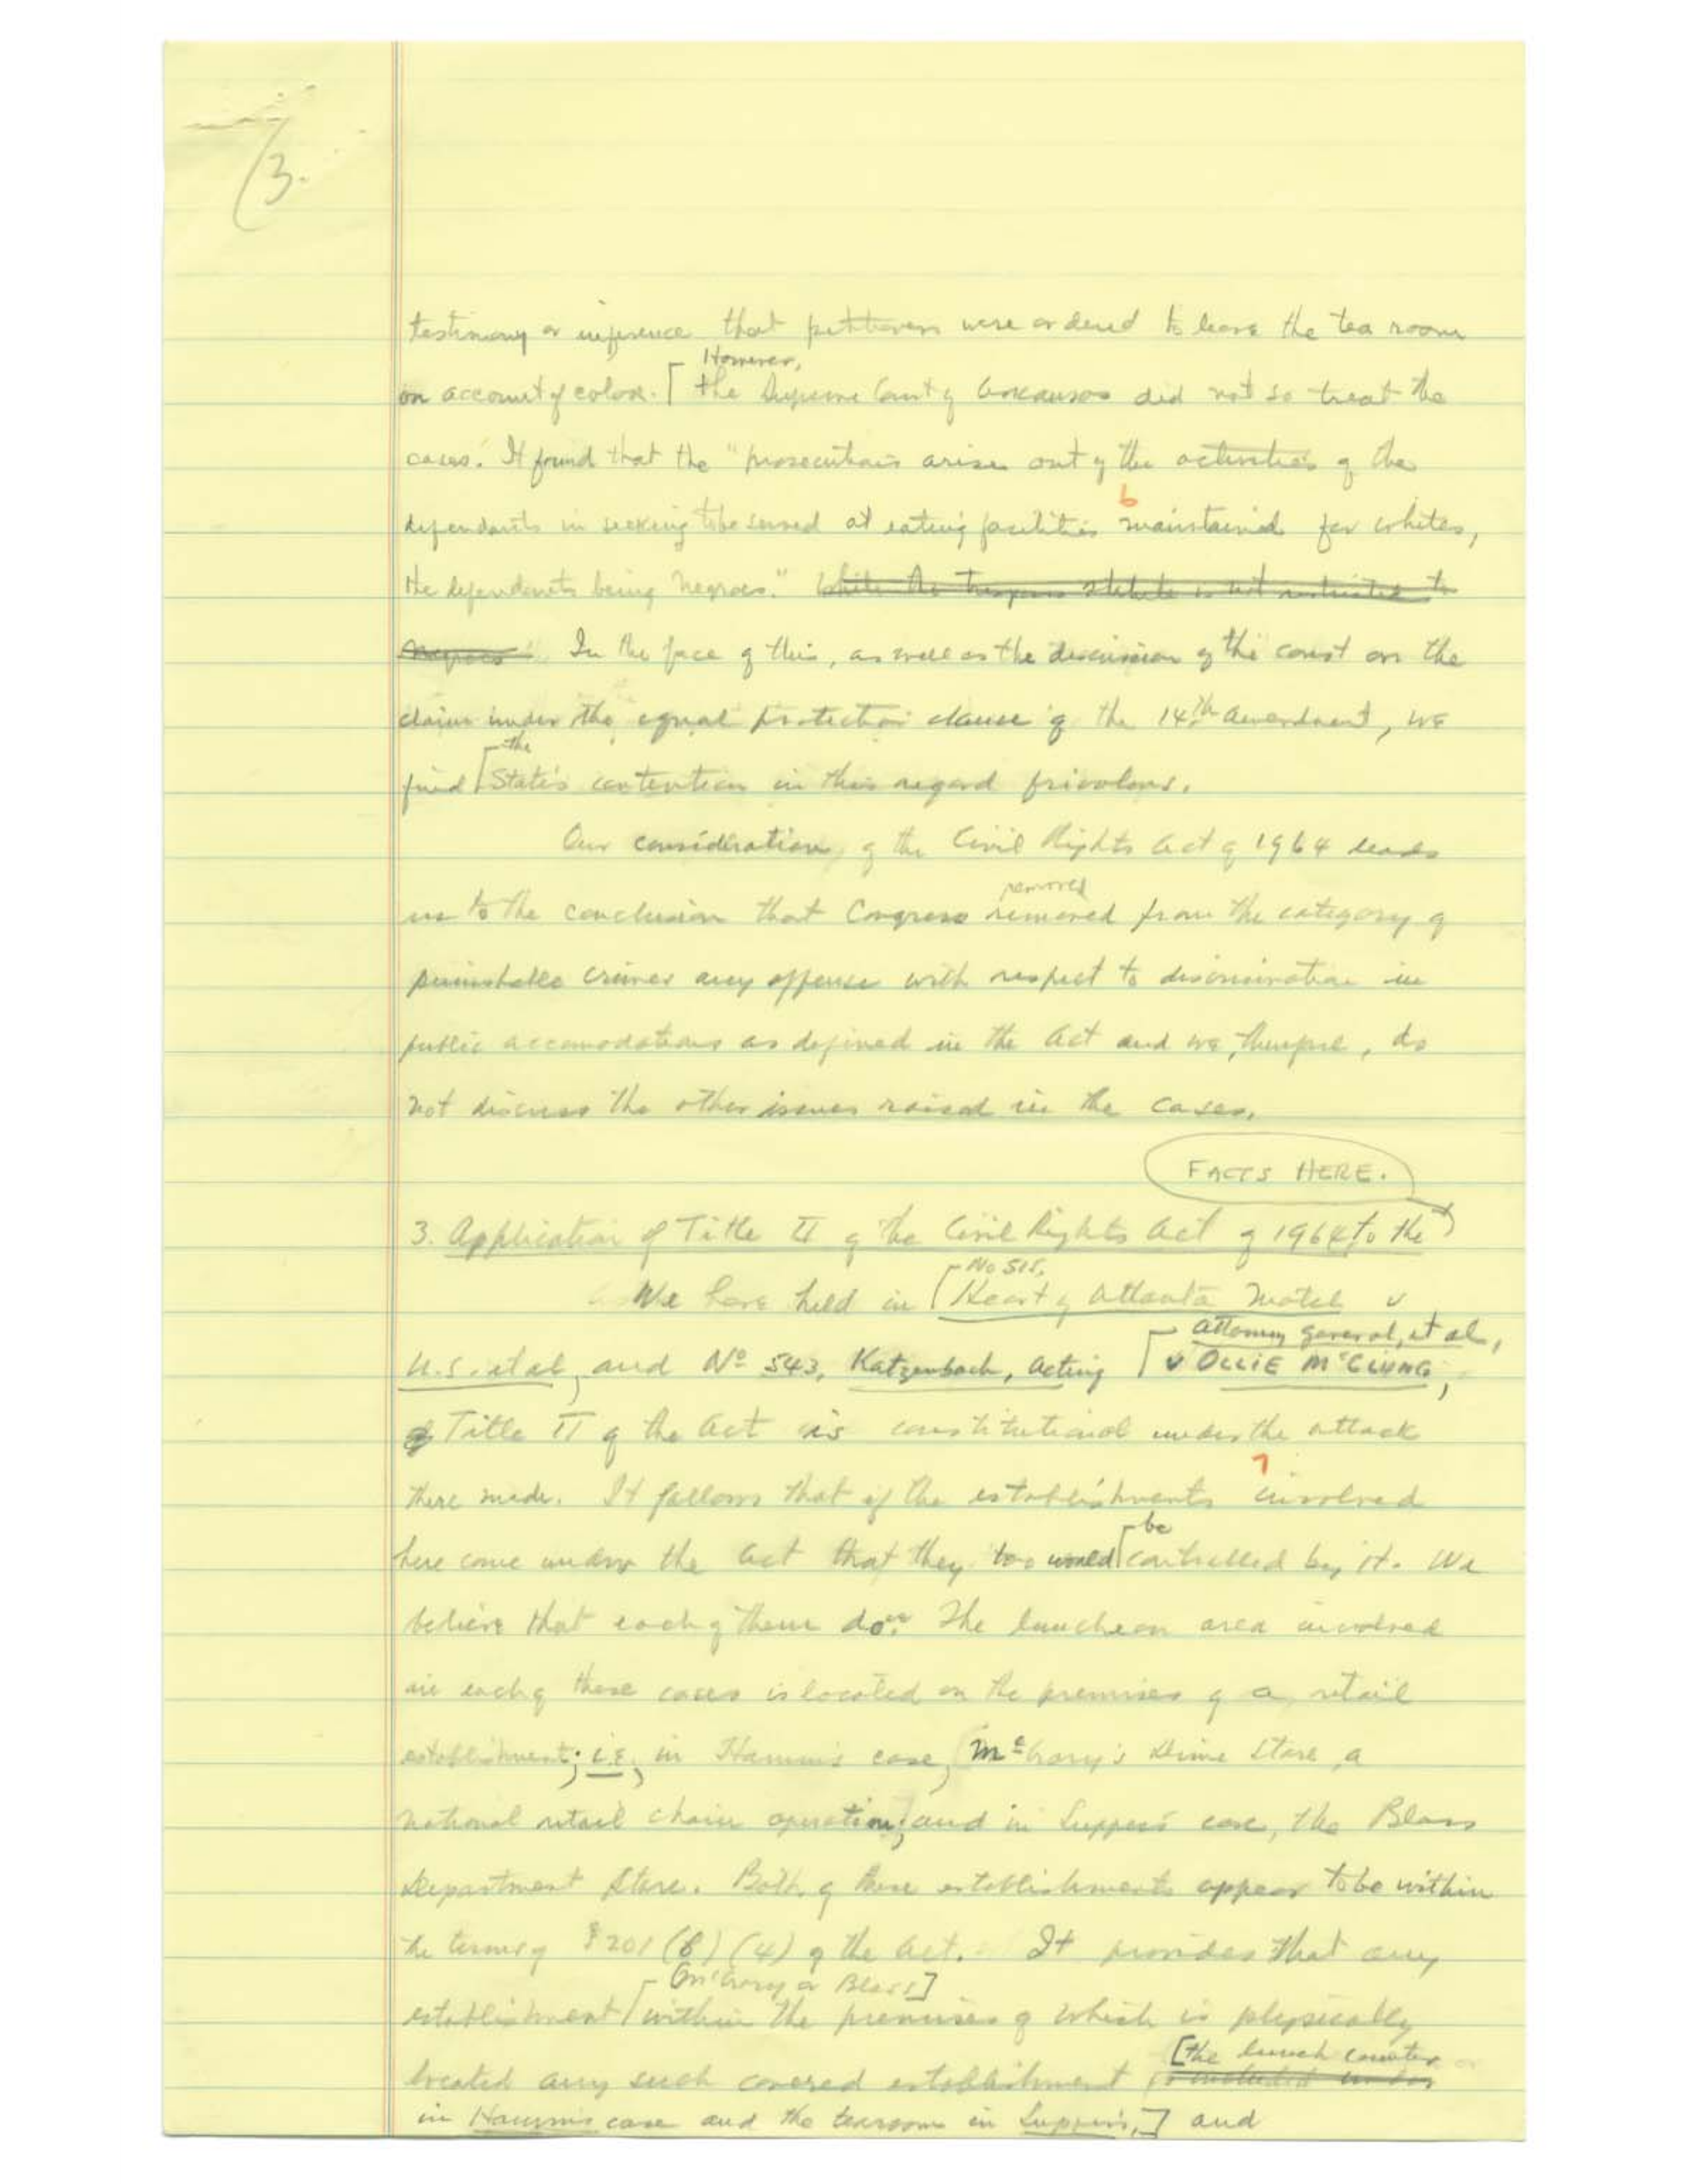 3.
testimony or inference that petitioners were ordered to leave the tea room
However,
on account of color. the Supreme Court of Arkansas did not so treat the
cases. It found that the "prosecutions arise out of the activities of the
6
defendants in seeking to be served at eating facilities maintained for whites,
the defendants being Negroes." While the trespass statute is not restricted to
Negroes In the face of this, as well as the discussion of the court on the
claim under the equal protection clause of the 14th Amendment, we
the
find State's contention in this regard frivolous.
Our consideration of the Civil Rights Act of 1964 leads
removed
us to the conclusion that Congress removed from the category of
punishable crimes any offense with respect to discrimination in
public accomodations as defined in the Act and we, therefore, do
not discuss the other issues raised in the cases.
FACTS HERE.
3. Application of Title II of the Civil Rights Act of 1964 to the
No 515,
We have held in Heart of Atlanta Motel v
Attorney General, et al,
U.S. et al, and No 543, Katzenbach, Acting v OLLIE McCLUNG,
Title II of the Act is constitutional under the attack
7
there made. It follows that if the establishments involved
be
here come under the Act that they too would controlled by it. We
believe that each of them do. The luncheon area involved
in each of these cases is located on the premises of a retail
establishment; i.e., in Hamm's case, McCrory's Dime Store, a
national retail chain operation; and in Lupper's case, the Blass
Department Store. Both of these establishments appear to be within
the terms of § 201 (b) (4) of the Act. It provides that any
[McCrory or Blass]
establishment within the premises of which is physically
[the lunch counter
located any such covered establishment is included under
in Hamm's case and the tearoom in Lupper's,] and